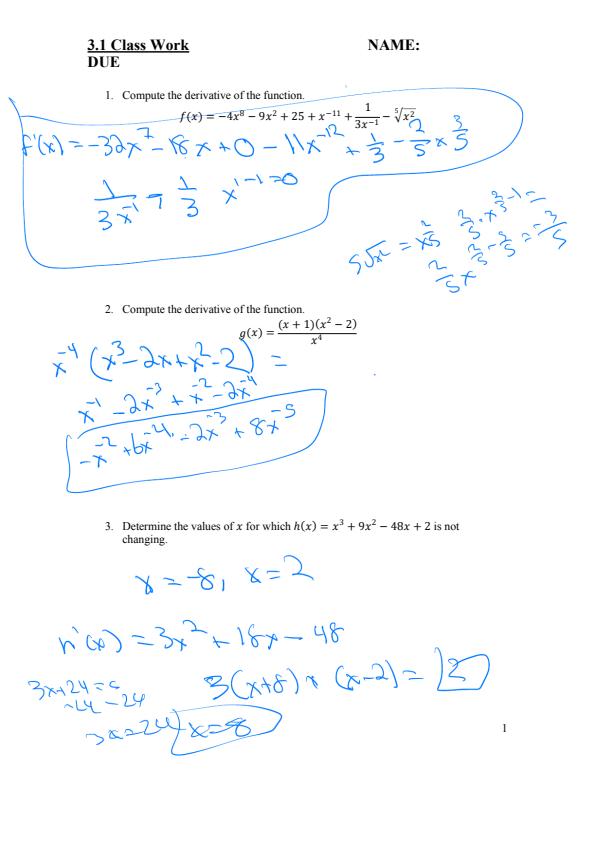 3.1 Class Work NAME:
DUE
1. Compute the derivative of the function.
f(x) = −4x⁸ − 9x² + 25 + x⁻¹¹ + 1/(3x⁻¹) − ⁵√x²
f'(x) = −32x⁷ − 18x + 0 − 11x⁻¹² + 1/3 − 2/5 x 3/5
1/(3x⁻¹) → 1/3 x¹⁻¹=0
5√x² = x 2/5 2/5 · x 2/5 −1 =
2/5 − 5/5 = −3/5
2/5 x
2. Compute the derivative of the function.
g(x) = (x + 1)(x² − 2)/x⁴
x⁻⁴ (x³ − 2x + x² − 2) =
x⁻¹ − 2x⁻³ + x⁻² − 2x⁻⁴
−x⁻² + 6x⁻⁴ − 2x⁻³ + 8x⁻⁵
3. Determine the values of x for which h(x) = x³ + 9x² − 48x + 2 is not
changing.
x = −8, x = 2
h'(x) = 3x² + 18x − 48
3(x+8) x (x−2) =
3x+24=
−24 −24
3x=24 x=8
1